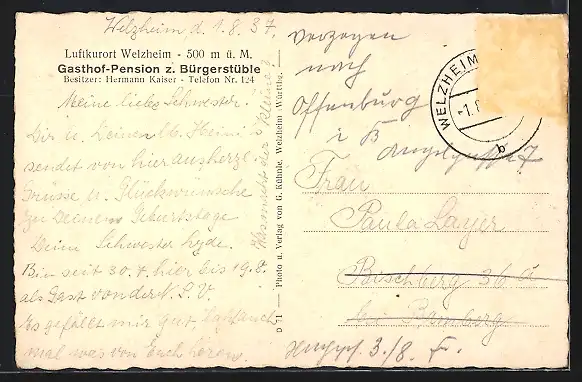 Welzheim d. 1.8.37.
Luftkurort Welzheim - 500 m ü. M.
Gasthof-Pension z. Bürgerstüble
Besitzer: Hermann Kaiser - Telefon Nr. 124
Meine liebe Schwester.
Dir u. Deinem lb. Heini
sendet von hier aus herzl.
Grüsse u. Glückwünsche
zu Deinem Geburtstage
Deine Schwester
Bin seit 30.7. hier bis 19.8.
als Gast von der N.S.V.
Es gefällt mir gut.
mal was von Euch hören.
Was macht der Kleine?
D 71 — Photo u. Verlag von G. Kühnle, Welzheim (Württbg.)
verzogen
nach
Offenburg
i B
WELZHEIM
-1.8
b
Frau
Paula Layer
Bischberg 36 a
bei Bamberg
3./8.